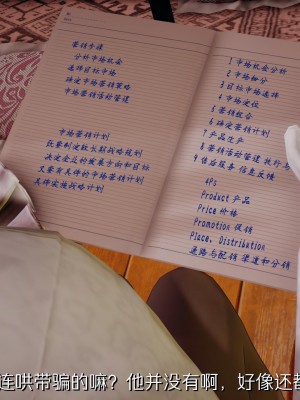 营销步骤
分析市场机会
选择目标市场
确定市场营销策略
市场营销活动管理
市场营销计划
既要制定较长期战略规划
决定企业的发展方向和目标
又要有具体的市场营销计划
具体实施战略计划
1 市场机会分析
2 市场细分
3 目标市场选择
4 市场定位
5 营销组合
6 确定营销计划
7 产品生产
8 营销活动管理 执行与
9 售后服务 信息反馈
4Ps
Product 产品
Price 价格
Promotion 促销
Place, Distribution
通路与配销 渠道和分销
连哄带骗的嘛？他并没有啊，好像还都